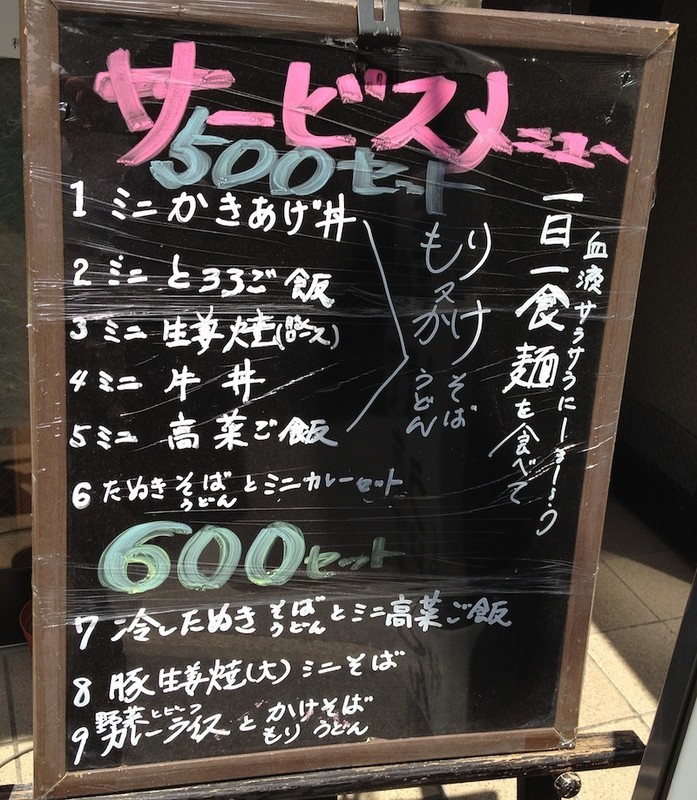 サービスメニュー
500セット
1 ミニかきあげ丼
2 ミニ とろろご飯
3 ミニ 生姜焼(豚ロース)
4 ミニ 牛丼
5 ミニ 高菜ご飯
もり又かけ
そば
うどん
6 たぬき そば うどん とミニカレーセット
600セット
7 冷したぬき そば うどん とミニ高菜ご飯
8 豚生姜焼(大)ミニそば
9 野菜とビーフカレーライスと かけそば もり うどん
一日一食麺を食べて
血液サラサラにしましょう